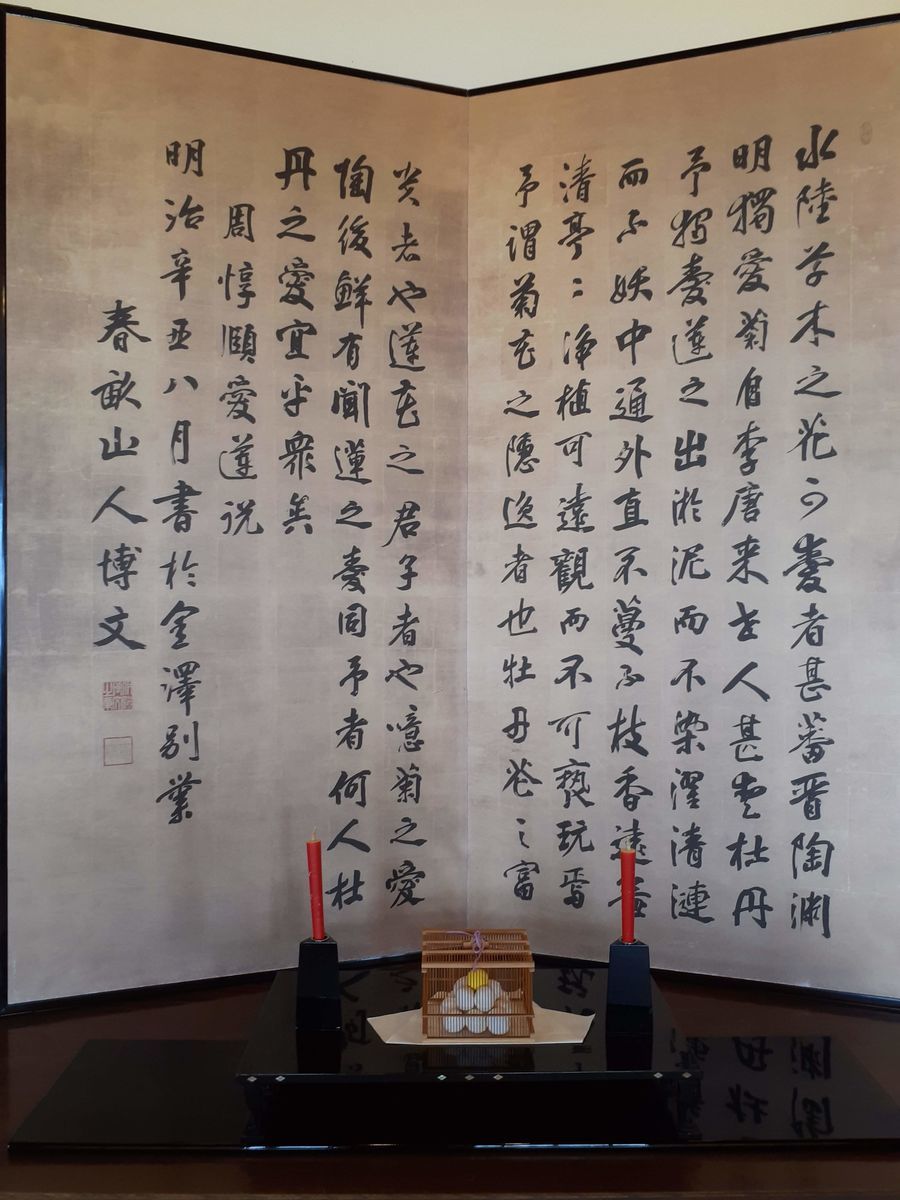 水陸草木之花可愛者甚蕃晋陶渊
明獨愛菊自李唐来世人甚愛牡丹
予獨愛蓮之出淤泥而不染濯清漣
而不妖中通外直不蔓不枝香遠益
清亭々淨植可遠觀而不可褻玩焉
予謂菊花之隠逸者也牡丹花之富
貴者也蓮花之君子者也噫菊之愛
陶後鮮有聞蓮之愛同予者何人牡
丹之愛宜乎衆矣
周惇頤愛蓮説
明治辛丑八月書於金澤別業
春畝山人博文